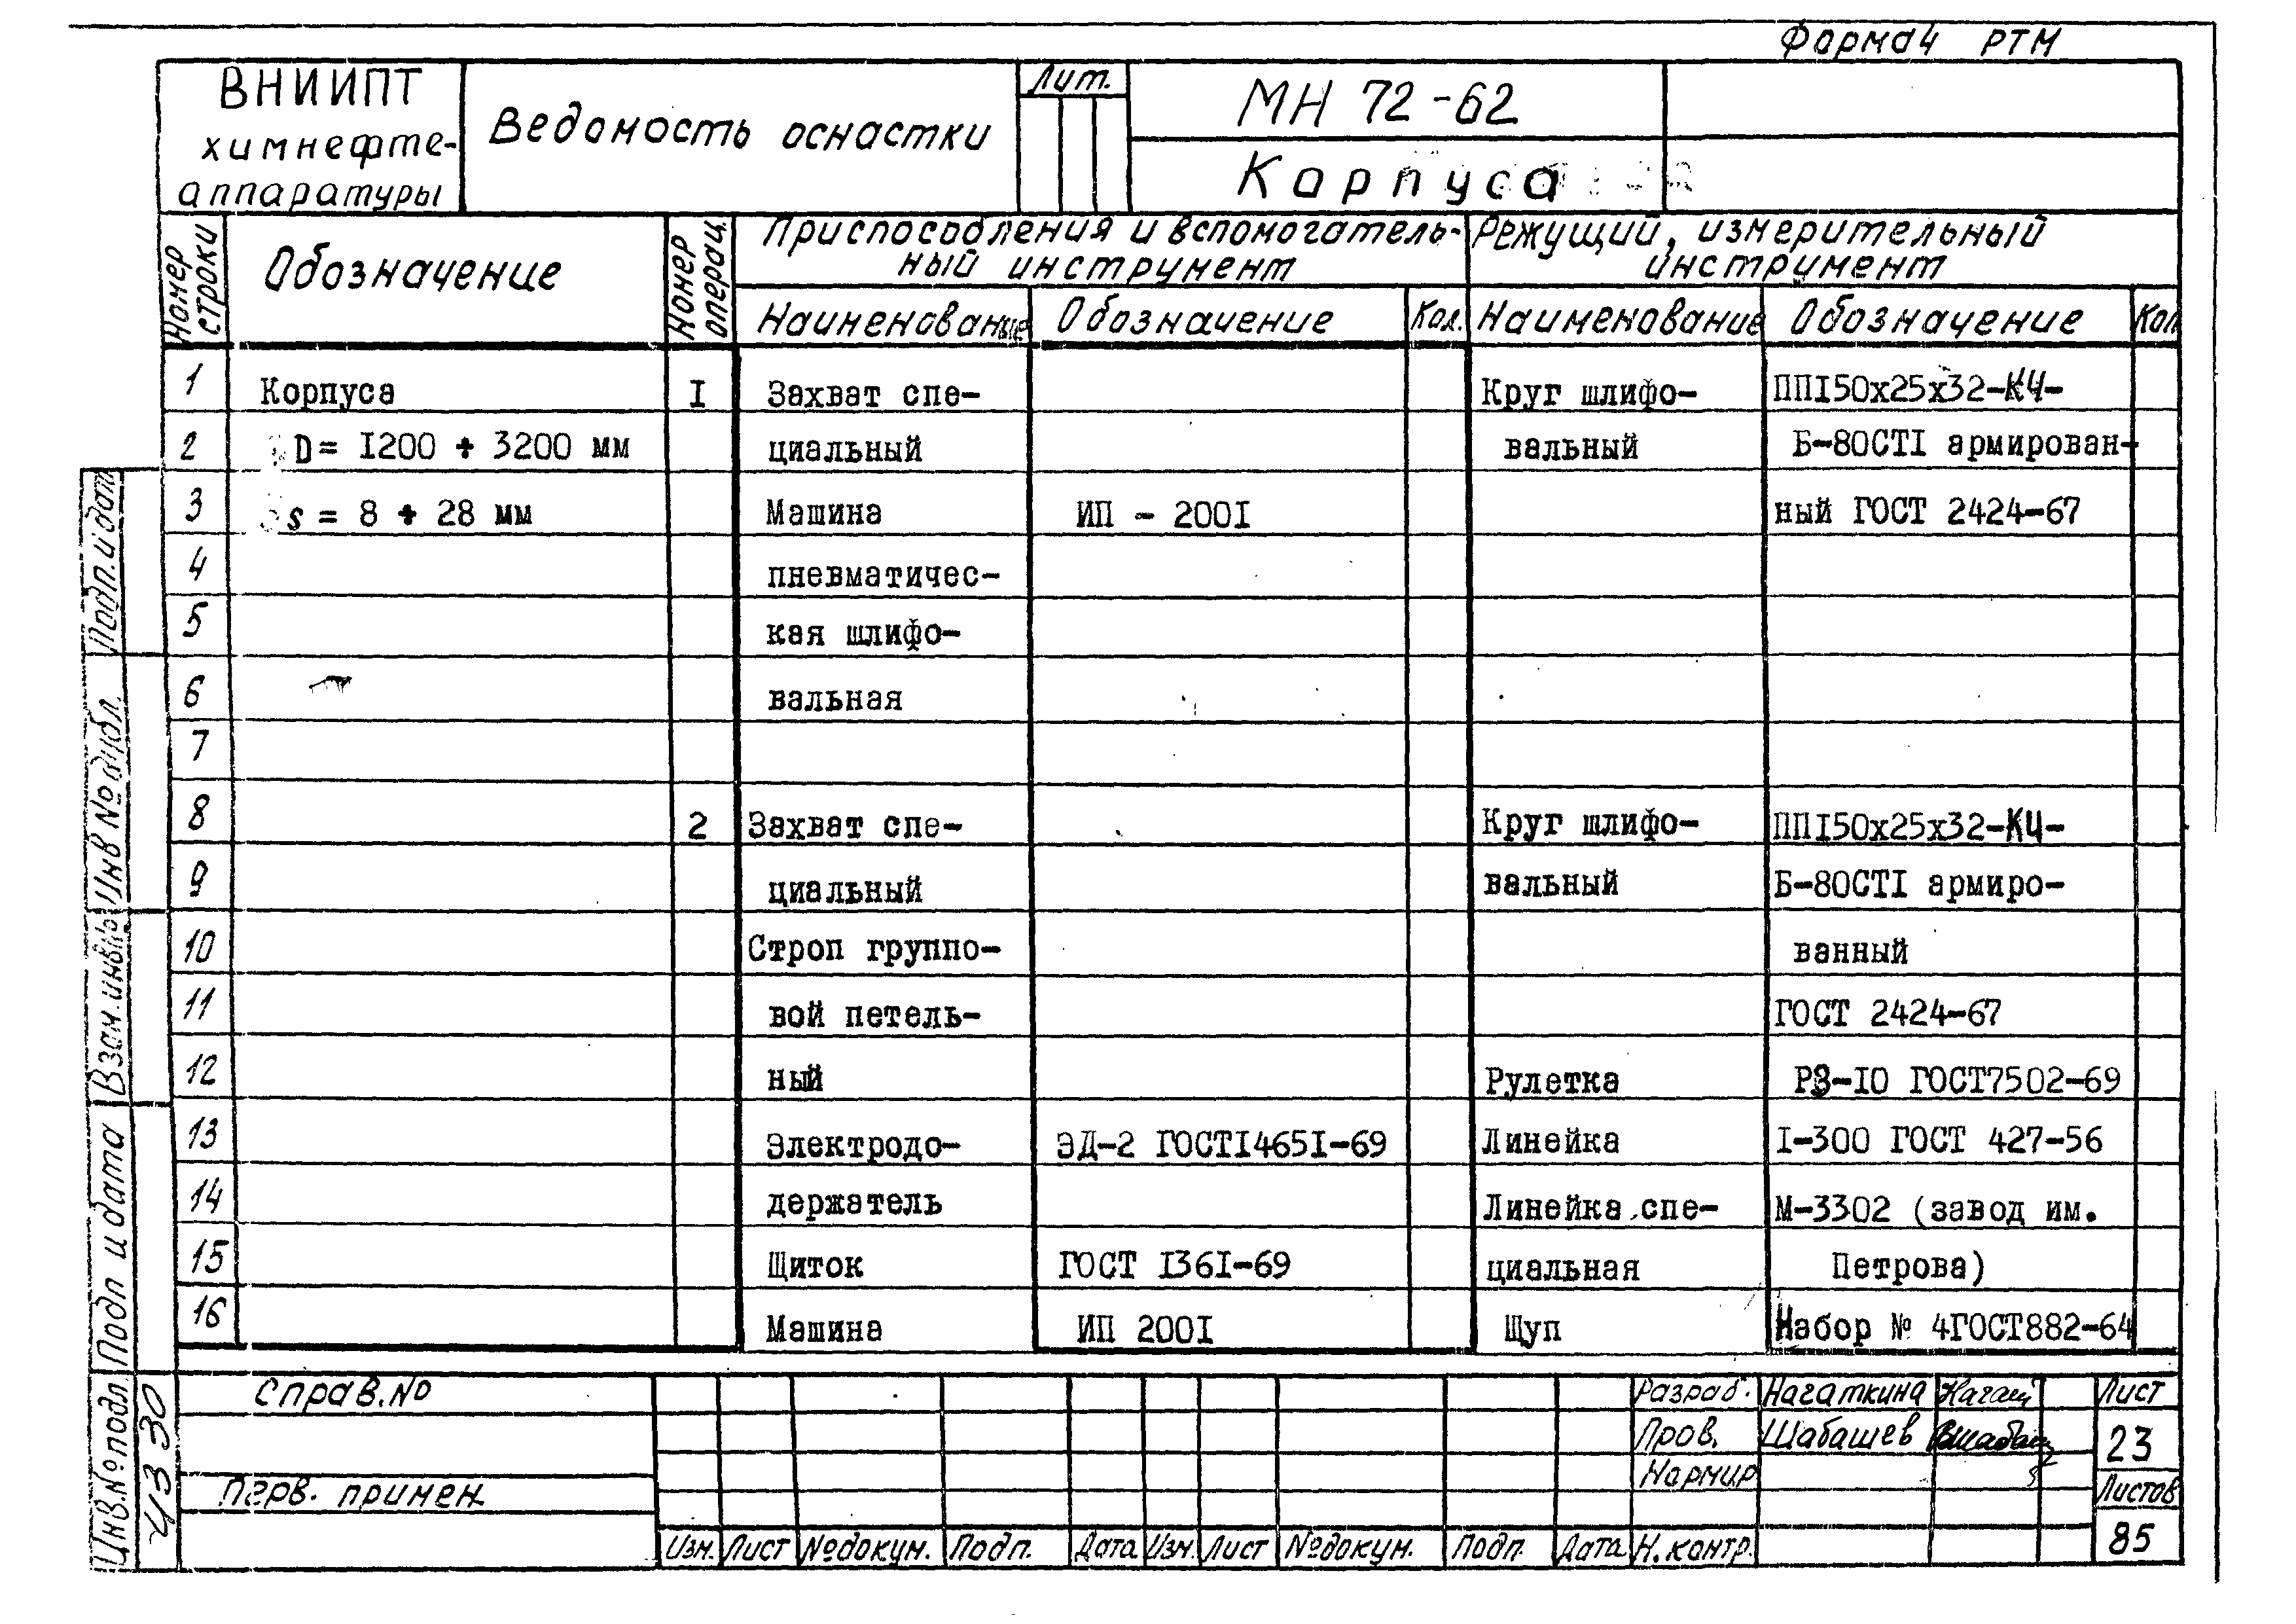 Форма 4 РТМ
ВНИИПТ
химнефте-
аппаратуры
Ведомость оснастки
Лит.
МН 72-62
Корпуса
Номер строки
Обозначение
Номер операц.
Приспособления и вспомогатель-
ный инструмент
Режущий, измерительный
инструмент
Наименование Обозначение Кол. Наименование Обозначение Кол
1 Корпуса I Захват спе- Круг шлифо- ППI50х25х32-КЧ-
2 D= I200 ÷ 3200 мм циальный вальный Б-80СТI армирован-
3 s = 8 ÷ 28 мм Машина ИП - 200I ный ГОСТ 2424-67
4 пневматичес-
5 кая шлифо-
6 вальная
7
8 2 Захват спе- Круг шлифо- ППI50х25х32-КЧ-
9 циальный вальный Б-80СТI армиро-
10 Строп группо- ванный
11 вой петель- ГОСТ 2424-67
12 ный Рулетка РЗ-IO ГОСТ7502-69
13 Электродо- ЭД-2 ГОСТI465I-69 Линейка I-300 ГОСТ 427-56
14 держатель Линейка спе- М-3302 (завод им.
15 Щиток ГОСТ I36I-69 циальная Петрова)
16 Машина ИП 200I Щуп Набор № 4ГОСТ882-64
Подп. и дат
Инв № дубл.
Взам. инв №
Подп и дата
Инв. № подл.
4330
Справ. №
Перв. примен.
Изм. Лист № докум. Подп. Дата Изм. Лист № докум. Подп. Дата
Разраб. Нагаткина
Пров. Шабашев
Нормир
Н. контр.
Лист
23
Листов
85